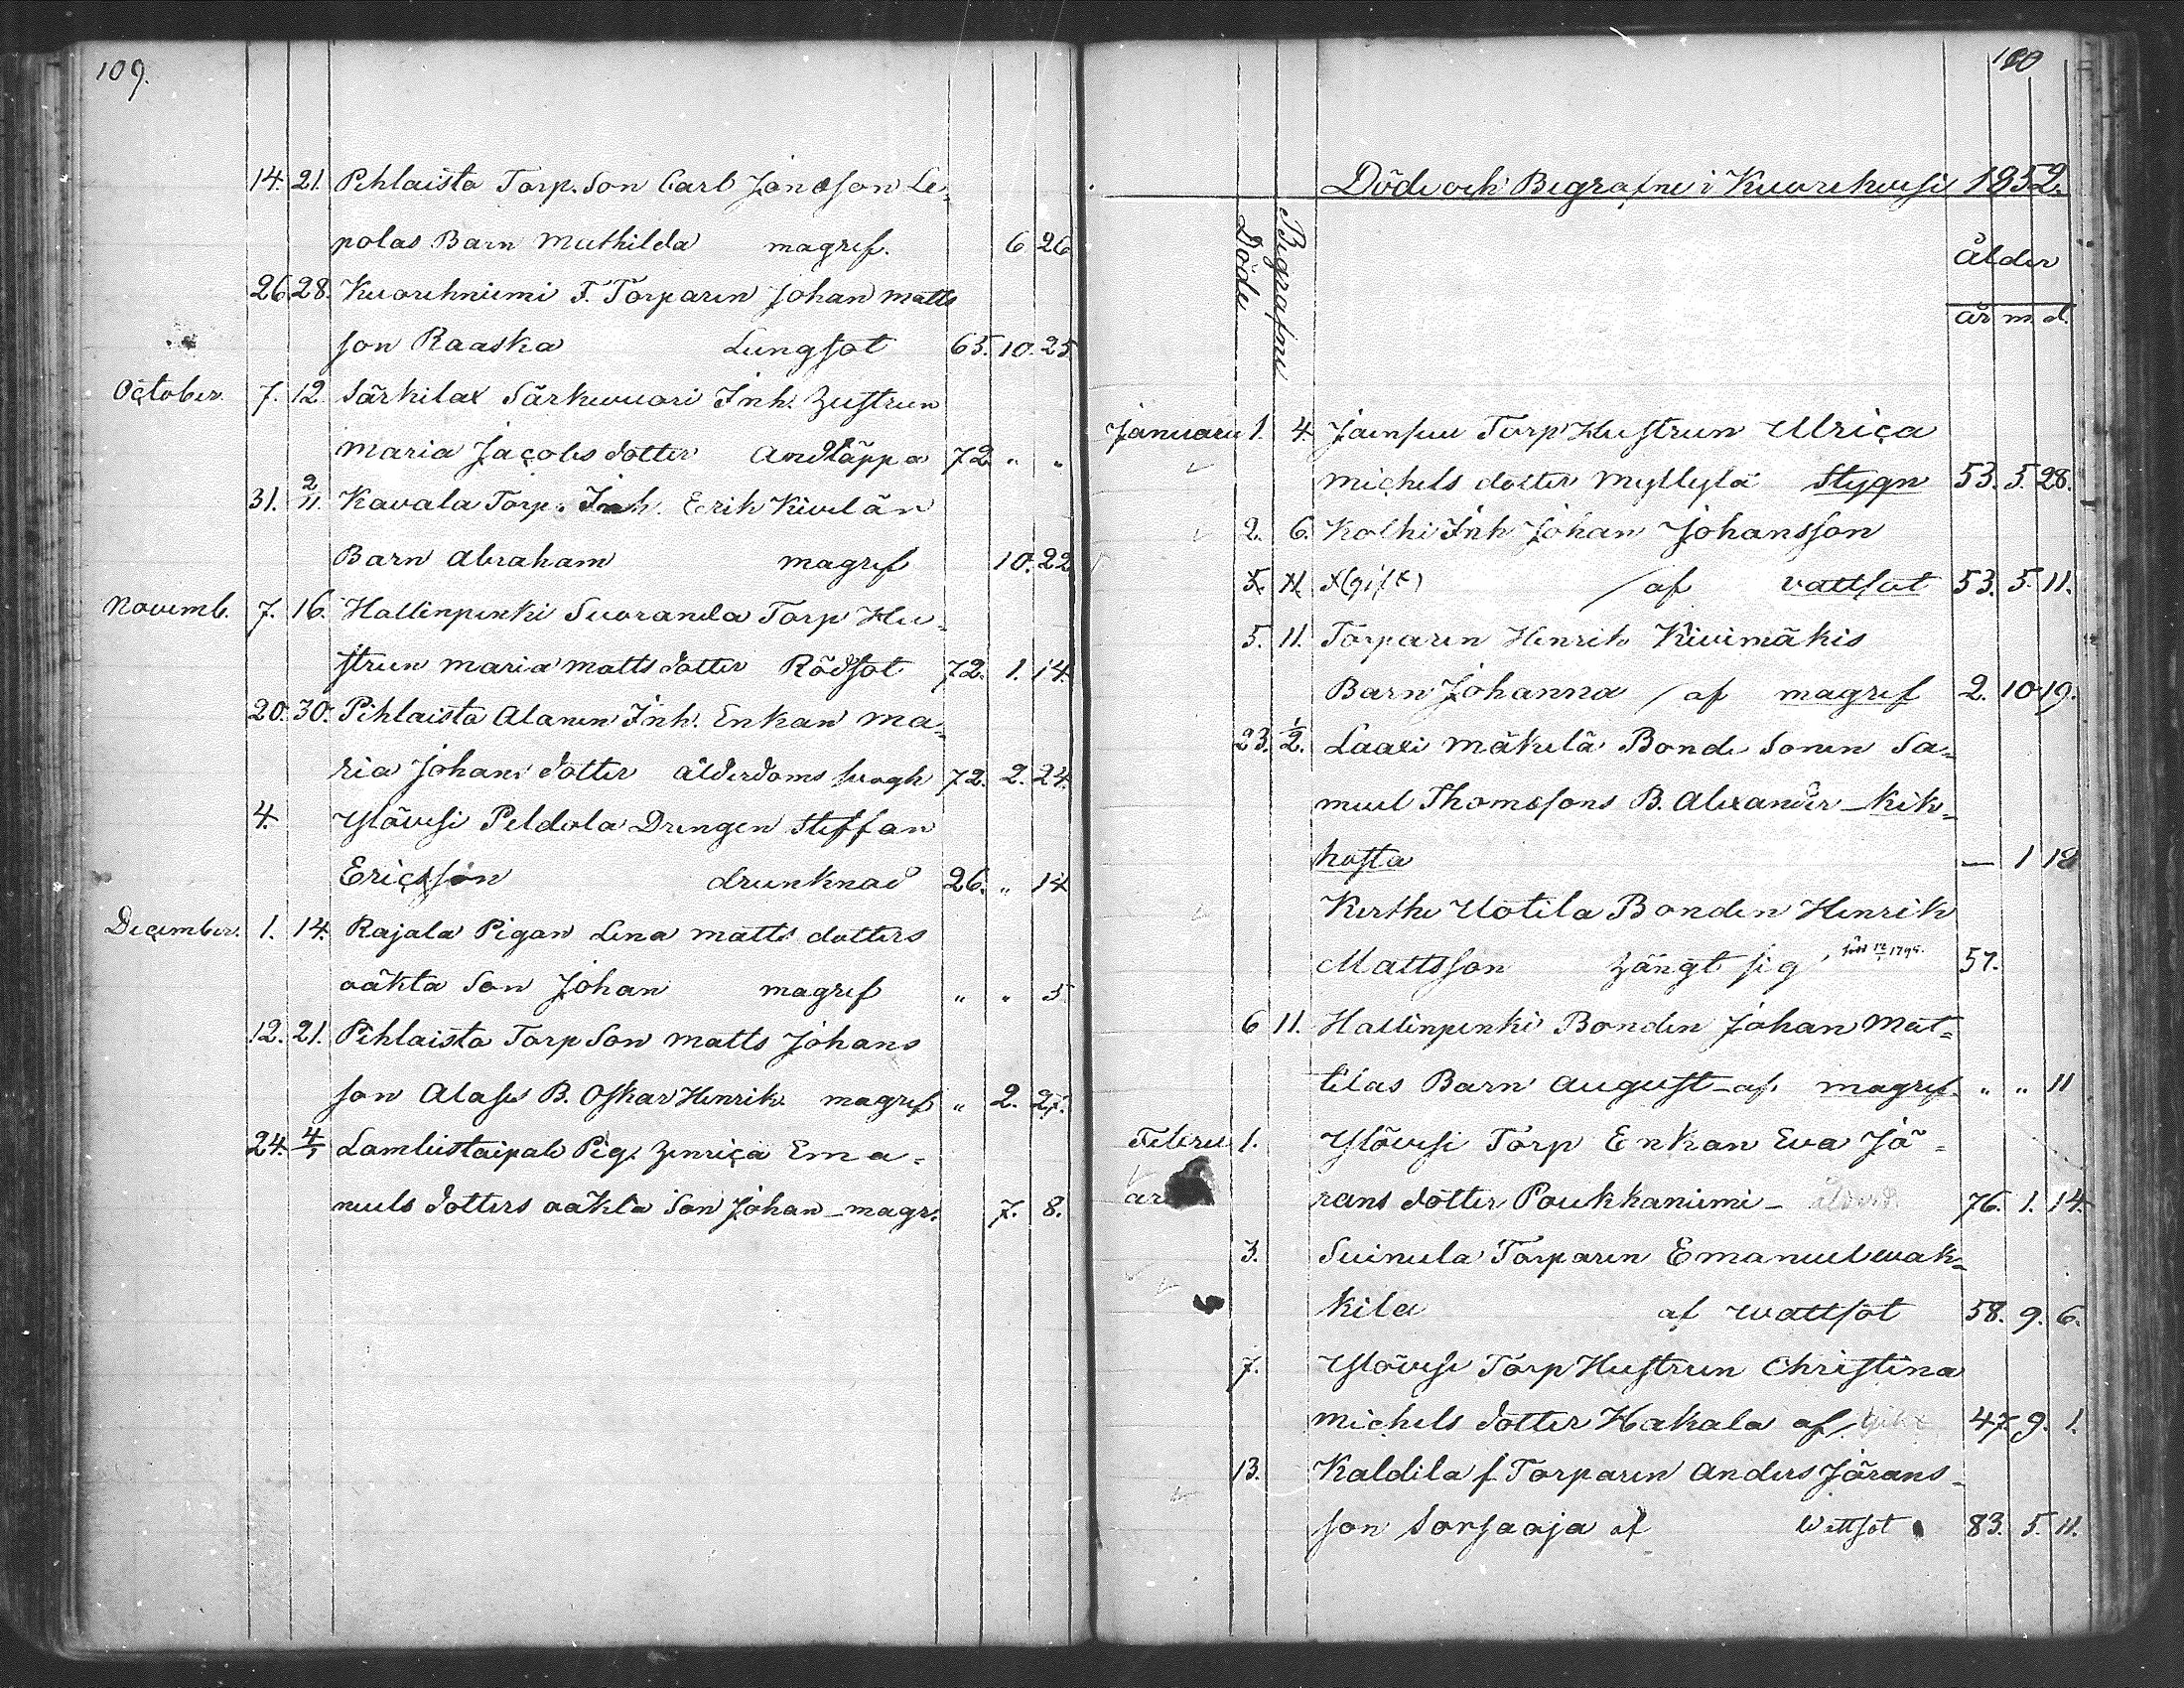 109.
14. 21. Pihlaisto Torp. Son Carl Jonasson Le-
polas Barn Mathilda magref. 6 26
26. 28. Kuorehniemi F. Torparen Johan Matts
son Raaska Lungsot 65. 10. 25
October. 7. 12. Särkilax Särkivuori Inh. Hustrun
Maria Jacobs dotter Andtäppa 72 " "
31. 2/11. Kavala Torp. Inh. Erik Kivelän
Barn Abraham magref 10. 22
Novemb. 7. 16. Hallinpenki Suoranda Torp Hu-
strun Maria Matts dotter Rödsot 72. 1. 14.
20. 30. Pihlaisto Alanen Inh. Enkan Ma-
ria Johans dotter ålderdoms svagh 72. 2. 24.
4. Ylövesi Peldola Drengen Steffan
Ericsson drunknad 26. " 14
December. 1. 14. Rajala Pigan Lena Matts dotters
oäkta Son Johan magref " " 5
12. 21. Pihlaisto Torp Son Matts Johans
son Alases B. Oskar Henrik magref " 2. 27.
24. 4/1 Lamlistaipale Pig. Henrica Ema-
nuels dotters oäkta Son Johan - magr. 7. 8.
110
Döde och Begrafne i Kuorehvesi 1852.
Döde
Begrafne
ålder
år m. d.
Januari 1. 4. Jainsuu Torp Hustrun Ulrica
Michels dotter Myllylä Stygn 53. 5. 28.
2. 6. Kolhi Inh Johan Johansson
5. 11. af vattsot 53. 5. 11.
5. 11. Torparen Henrik Kivimäkis
Barn Johanna af magref 2. 10 19.
23. 1/2. Laari Mäkelä Bonde Sonen Sa-
muel Thomssons B. Alexander - Kik-
hosta — 1 18
Kerthe Uotila Bonden Henrik
Mattsson hängt sig, född 1795. 57.
6 11. Hallinpenki Bonden Johan Mat-
tilas Barn August - af magref. " " 11
Febru 1. Ylövesi Torp Enkan Eva Jö-
ari rans dotter Poukkaniemi - ålderd. 76. 1. 14.
3. Suinula Torparen Emanuel Wak-
kila af wattsot 58. 9. 6.
7. Ylövesi Torp Hustrun Christina
Michels dotter Hakala af 47. 9. 1.
13. Kaldila f. Torparen Anders Jörans-
son Sorsaoja af Wattsot 83. 5. 11.